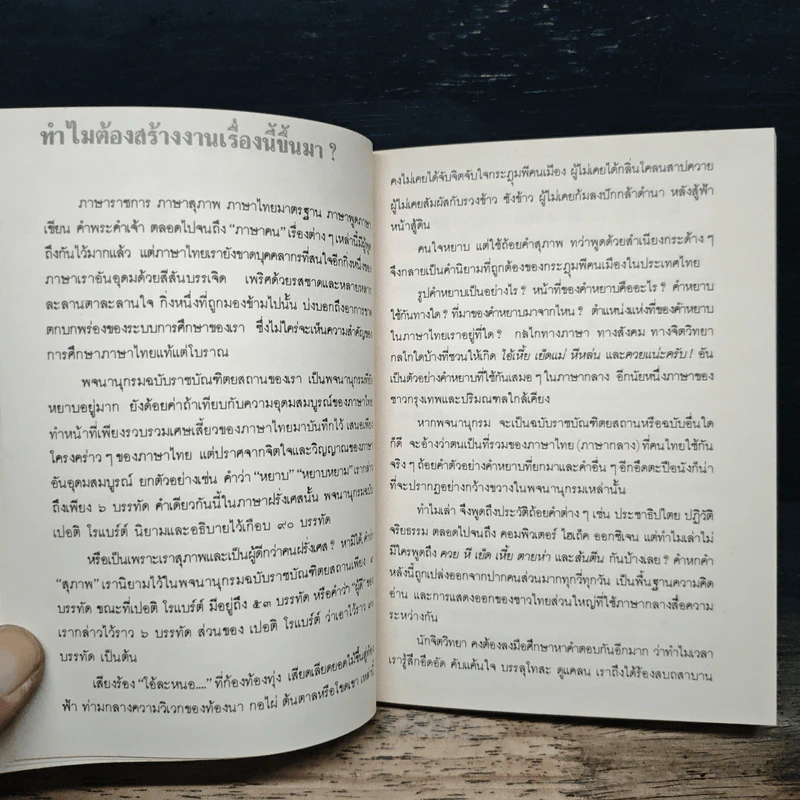 ทำไมต้องสร้างงานเรื่องนี้ขึ้นมา ?
ภาษาราชการ ภาษาสุภาพ ภาษาไทยมาตรฐาน ภาษาพูดภาษา
เขียน คำพระคำเจ้า ตลอดไปจนถึง “ภาษาคน” เรื่องต่าง ๆ เหล่านี้มีผู้พูด
ถึงกันไว้มากแล้ว แต่ภาษาไทยเรายังขาดบุคคลากรที่สนใจอีกกิ่งหนึ่งของ
ภาษาเราอันอุดมด้วยสีสันบรรเจิด เพริศด้วยรสชาดและหลายหลาก
ละลานตาละลานใจ กิ่งหนึ่งที่ถูกมองข้ามไปนั้น บ่งบอกถึงอาการขาด
ตกบกพร่องของระบบการศึกษาของเรา ซึ่งไม่ใคร่จะเห็นความสำคัญของ
การศึกษาภาษาไทยแท้แต่โบราณ
พจนานุกรมฉบับราชบัณฑิตยสถานของเรา เป็นพจนานุกรมที่ยัง
หยาบอยู่มาก ยังด้อยค่าถ้าเทียบกับความอุดมสมบูรณ์ของภาษาไทย
ทำหน้าที่เพียงรวบรวมเศษเสี้ยวของภาษาไทยมาบันทึกไว้ เสนอเพียง
โครงคร่าว ๆ ของภาษาไทย แต่ปราศจากจิตใจและวิญญาณของภาษา
อันอุดมสมบูรณ์ ยกตัวอย่างเช่น คำว่า “หยาบ” “หยาบหยาม” เรากล่าว
ถึงเพียง ๖ บรรทัด คำเดียวกันนี้ในภาษาฝรั่งเศสนั้น พจนานุกรมฉบับ
เปอติ โรแบร์ต์ นิยามและอธิบายไว้เกือบ ๙๐ บรรทัด
หรือเป็นเพราะเราสุภาพและเป็นผู้ดีกว่าคนฝรั่งเศส ? หามิได้ คำว่า
“สุภาพ” เรานิยามไว้ในพจนานุกรมฉบับราชบัณฑิตยสถานเพียง
บรรทัด ขณะที่เปอติ โรแบร์ต์ มีอยู่ถึง ๕๓ บรรทัด หรือคำว่า “ผู้ดี” ของ
เรากล่าวไว้ราว ๖ บรรทัด ส่วนของ เปอติ โรแบร์ต์ ว่าเอาไว้ราว
บรรทัด เป็นต้น
เสียงร้อง “โอ้ละหนอ....” ที่ก้องท้องทุ่ง เสียดเลียดยอดไม้ขึ้นสู่ท้อง
ฟ้า ท่ามกลางความวิเวกของท้องนา กอไผ่ ต้นตาลหรือโขดเขา เหล่านี้
คงไม่เคยได้จับจิตจับใจกระฎุมพีคนเมือง ผู้ไม่เคยได้กลิ่นโคลนสาปควาย
ผู้ไม่เคยสัมผัสกับรวงข้าว ซังข้าว ผู้ไม่เคยก้มลงปักกล้าดำนา หลังสู้ฟ้า
หน้าสู้ดิน
คนใจหยาบ แต่ใช้ถ้อยคำสุภาพ ทว่าพูดด้วยสำเนียงกระด้าง ๆ
จึงกลายเป็นคำนิยามที่ถูกต้องของกระฎุมพีคนเมืองในประเทศไทย
รูปคำหยาบเป็นอย่างไร ? หน้าที่ของคำหยาบคืออะไร ? คำหยาบ
ใช้กันทางใด ? ที่มาของคำหยาบมาจากไหน ? ตำแหน่งแห่งที่ของคำหยาบ
ในภาษาไทยเราอยู่ที่ใด ? กลไกทางภาษา ทางสังคม ทางจิตวิทยา
กลไกใดบ้างที่ชวนให้เกิด ไอ้เหี้ย เย็ดแม่ หีหล่น และควยแน่ะครับ! อัน
เป็นตัวอย่างคำหยาบที่ใช้กันเสมอ ๆ ในภาษากลาง อีกนัยหนึ่งภาษาของ
ชาวกรุงเทพและปริมณฑลใกล้เคียง
หากพจนานุกรม จะเป็นฉบับราชบัณฑิตยสถานหรือฉบับอื่นใด
ก็ดี จะอ้างว่าตนเป็นที่รวมของภาษาไทย (ภาษากลาง) ที่คนไทยใช้กัน
จริง ๆ ถ้อยคำตัวอย่างคำหยาบที่ยกมาและคำอื่น ๆ อีกอื้อตะปือนังก็น่า
ที่จะปรากฏอย่างกว้างขวางในพจนานุกรมเหล่านั้น
ทำไมเล่า จึงพูดถึงประวัติถ้อยคำต่าง ๆ เช่น ประชาธิปไตย ปฏิวัติ
จริยธรรม ตลอดไปจนถึง คอมพิวเตอร์ ไฮเถ็ค ออกซิเจน แต่ทำไมเล่าไม่
มีใครพูดถึง ควย หี เย็ด เหี้ย ตายห่า และส้นตีน กันบ้างเลย ? คำหกคำ
หลังนี้ถูกเปล่งออกจากปากคนส่วนมากทุกวี่ทุกวัน เป็นพื้นฐานความคิด
อ่าน และการแสดงออกของชาวไทยส่วนใหญ่ที่ใช้ภาษากลางสื่อความ
ระหว่างกัน
นักจิตวิทยา คงต้องลงมือศึกษาหาคำตอบกันอีกมาก ว่าทำไมเวลา
เรารู้สึกอึดอัด คับแค้นใจ บรรลุโทสะ ดูแคลน เราถึงได้ร้องสบถสาบาน